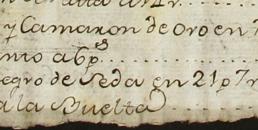 y Camaron de Oro en
nto a 6 p.s
negro de Seda en 21 p 7 r
a la Buelta